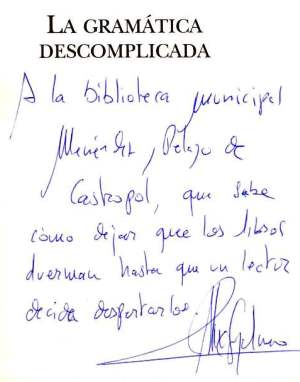 LA GRAMÁTICA
DESCOMPLICADA
A la biblioteca municipal
Menéndez Pelayo de
Castropol, que sabe
cómo dejar que los libros
duerman hasta que un lector
decida despertarlos.